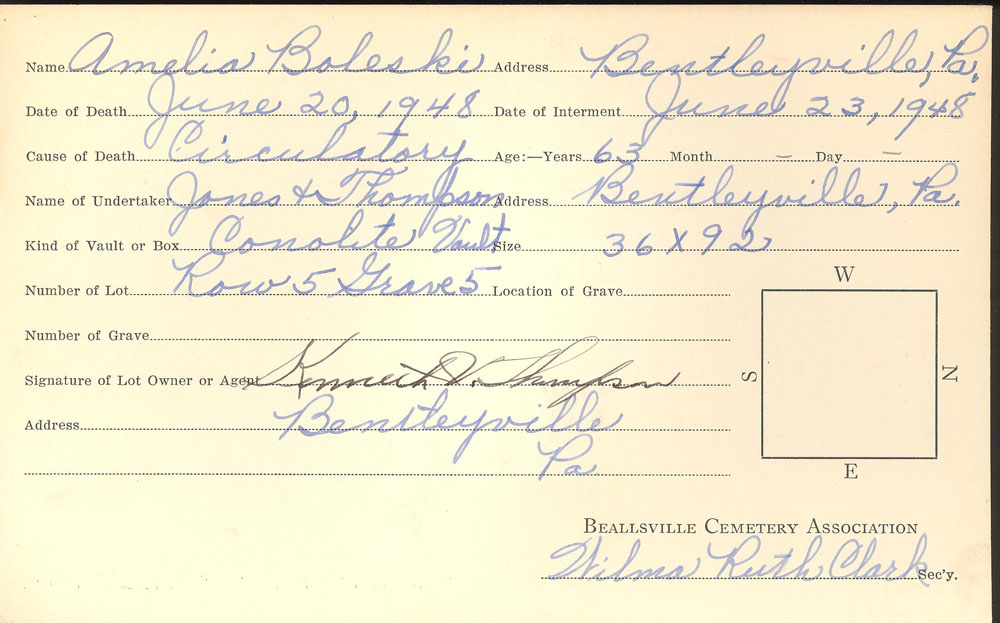 Name Amelia Boleski Address Bentleyville, Pa.
Date of Death June 20, 1948 Date of Interment June 23, 1948
Cause of Death Circulatory Age:—Years 63 Month – Day –
Name of Undertaker Jones & Thompson Address Bentleyville, Pa.
Kind of Vault or Box Conolite Vault Size 36 X 92
Number of Lot Row 5 Grave 5 Location of Grave
W
Number of Grave
Signature of Lot Owner or Agent Kenneth V. Thompson
S N
Address Bentleyville
Pa
E
Beallsville Cemetery Association
Wilma Ruth Clark Sec'y.